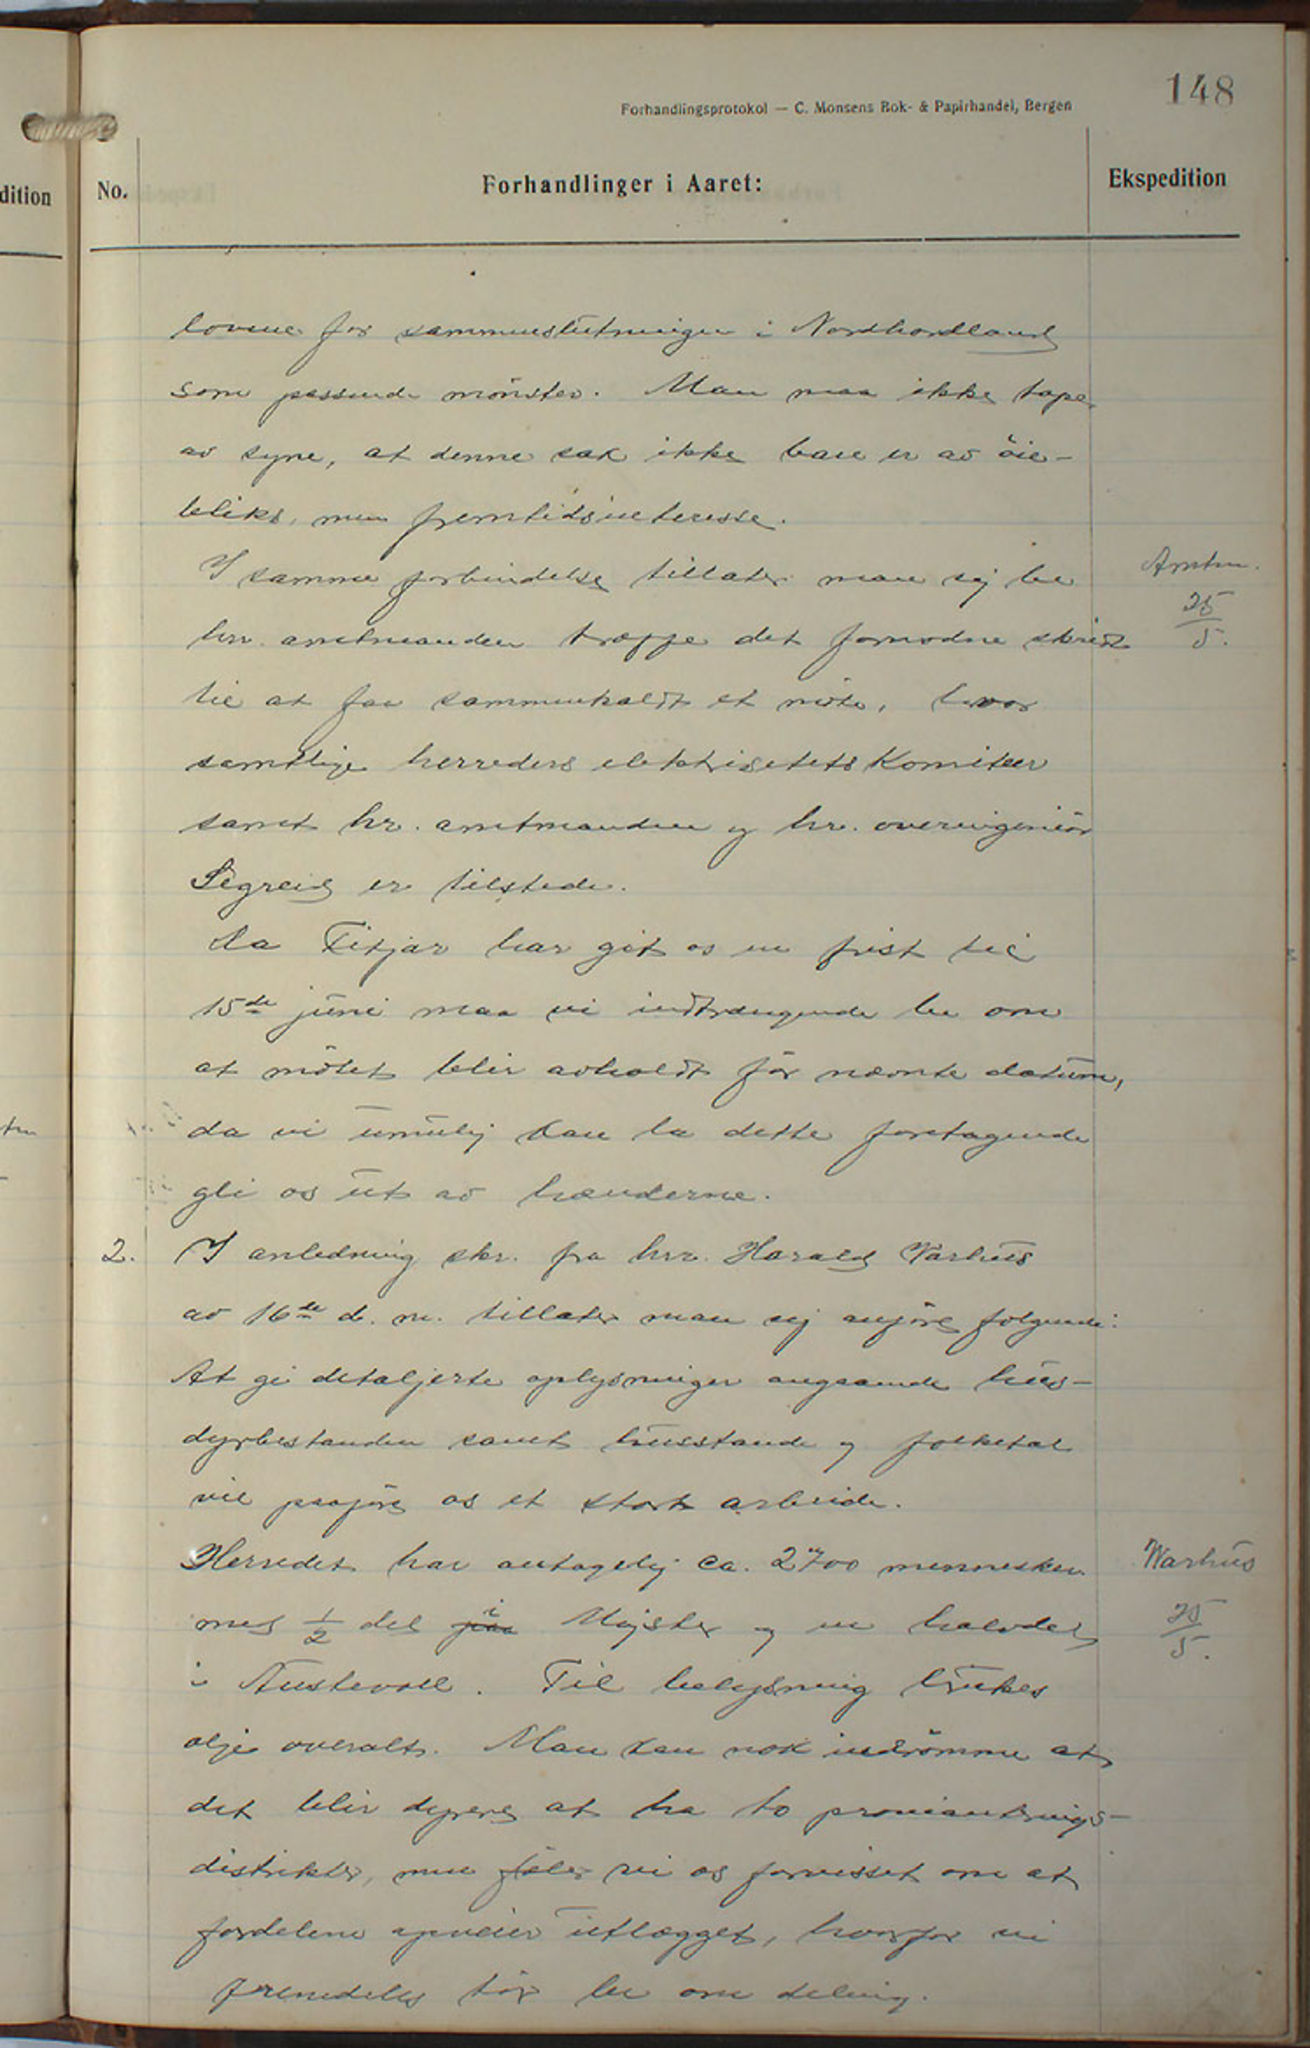 148
Forhandlingsprotokol — C. Monsens Bok- & Papirhandel, Bergen
dition
No.
Forhandlinger i Aaret:
Ekspedition
lovene for sammenslutningen i Nordhordland
som passende mönster. Man maa ikke tape
av syne, at denne sak ikke bare er av öie-
bliks, men fremtidsinteresse.
I samme forbindelse tillater man sig be
Amtm.
25/5.
hr. amtmanden træffe det fornødne skridt
til at faa sammenkaldt et møte, hvor
samtlige herreders elektrisitetskomiteer
samt hr. amtmanden og hr. overingeniør
Segreid er tilstede.
Da Fitjar har git os en frist til
15de juni maa vi indtrængende be om
at mötet blir avholdt för nævnte datum,
da vi umulig kan la dette foretagende
gli os ut av hænderne.
2. I anledning skr. fra hr. Harald Warhus
av 16de d. m. tillater man sig anföre følgende:
At gi detaljerte oplysninger angaaende hus-
dyrbestanden samt husstande og folketal
vil paaföre os et stort arbeide.
Herredet har antagelig ca. 2700 mennesker
Warhus
25/5.
med 1/2 del paa i Møgster og en halvdel
i Austevoll. Til belysning brukes
olje overalt. Man kan nok indrömme at
det blir dyrere at ha to provianterings-
distrikter, men föler vi os forvisset om at
fordelene opveier utlægget, hvorfor vi
fremdeles tör be om deling.